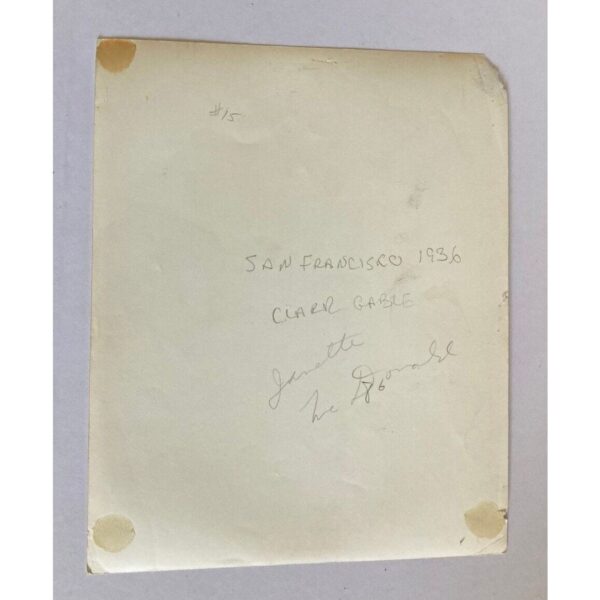 #15
SAN FRANCISCO 1936
CLARK GABLE
Janette
Mc Donald